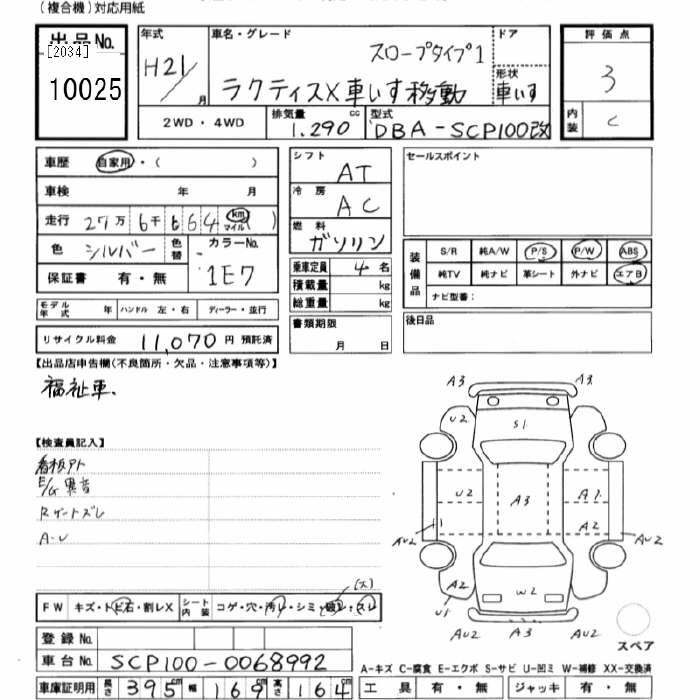 (複合機)対応用紙
出品No.
[2034]
10025
年式
H21/
月
車名・グレード
スロープタイプ1
ラクティスX車いす移動
ドア
形状
車いす
2WD・4WD
排気量
1.290
cc
型式
DBA-SCP100改
評価点
3
内装
C
車歴
自家用・( )
車検 年 月
走行 27万 6千 664 km マイル( )
色 シルバー 色替
カラーNo.
1E7
保証書 有・無
シフト
AT
冷房
AC
燃料
ガソリン
乗車定員 4 名
積載量 kg
総重量 kg
書類期限
月 日
セールスポイント
装備品
S/R 純A/W P/S P/W ABS
純TV 純ナビ 革シート 外ナビ エアB
ナビ型番:
後日品
モデル年式 年
ハンドル 左・右
ディーラー・並行
リサイクル料金 11,070 円 預託済
【出品店申告欄(不良箇所・欠品・注意事項等)】
福祉車.
【検査員記入】
看板アト
E/G異音
Rゲートズレ
A-U
FW キズ・トビ石・割レX
シート内装 コゲ・穴・汚レ・シミ・破レ・スレ
(大)
登録No.
車台No. SCP100-0068992
車庫証明用 長さ 395cm 幅 169cm 高さ 164cm
A3 A3
U2 S1
U2 A3 A1
A2
AU2 AU2
A2 W2
U1
AU2 A3 AU2
スペア
A-キズ C-腐食 E-エクボ S-サビ U-凹ミ W-補修 XX-交換済
工具 有・無 ジャッキ 有・無